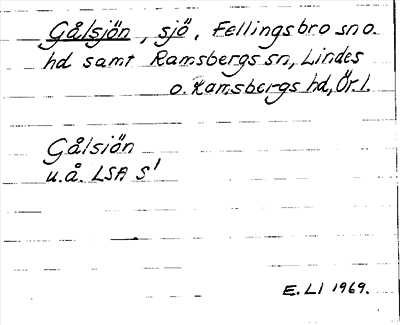 Gålsjön, sjö, Fellingsbro sn o.
hd samt Ramsbergs sn, Lindes
o. Ramsbergs hd, Ör. l.
Gålsiön
u.å. LSA S¹
E. LI 1969.